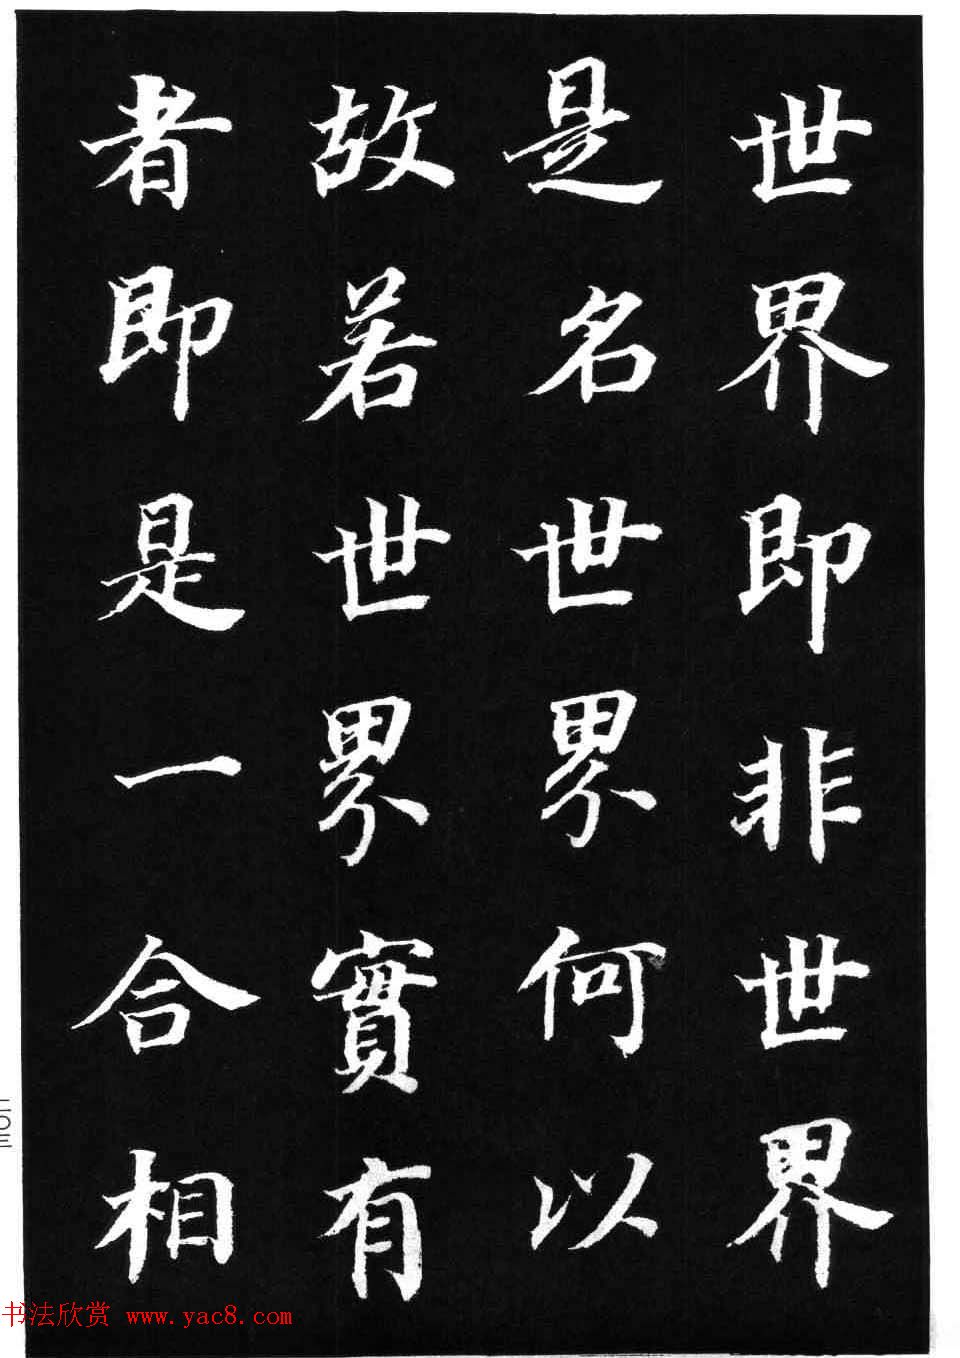 世界即非世界
是名世界何以
故若世界實有
者即是一合相
书法欣赏 www.yac8.com